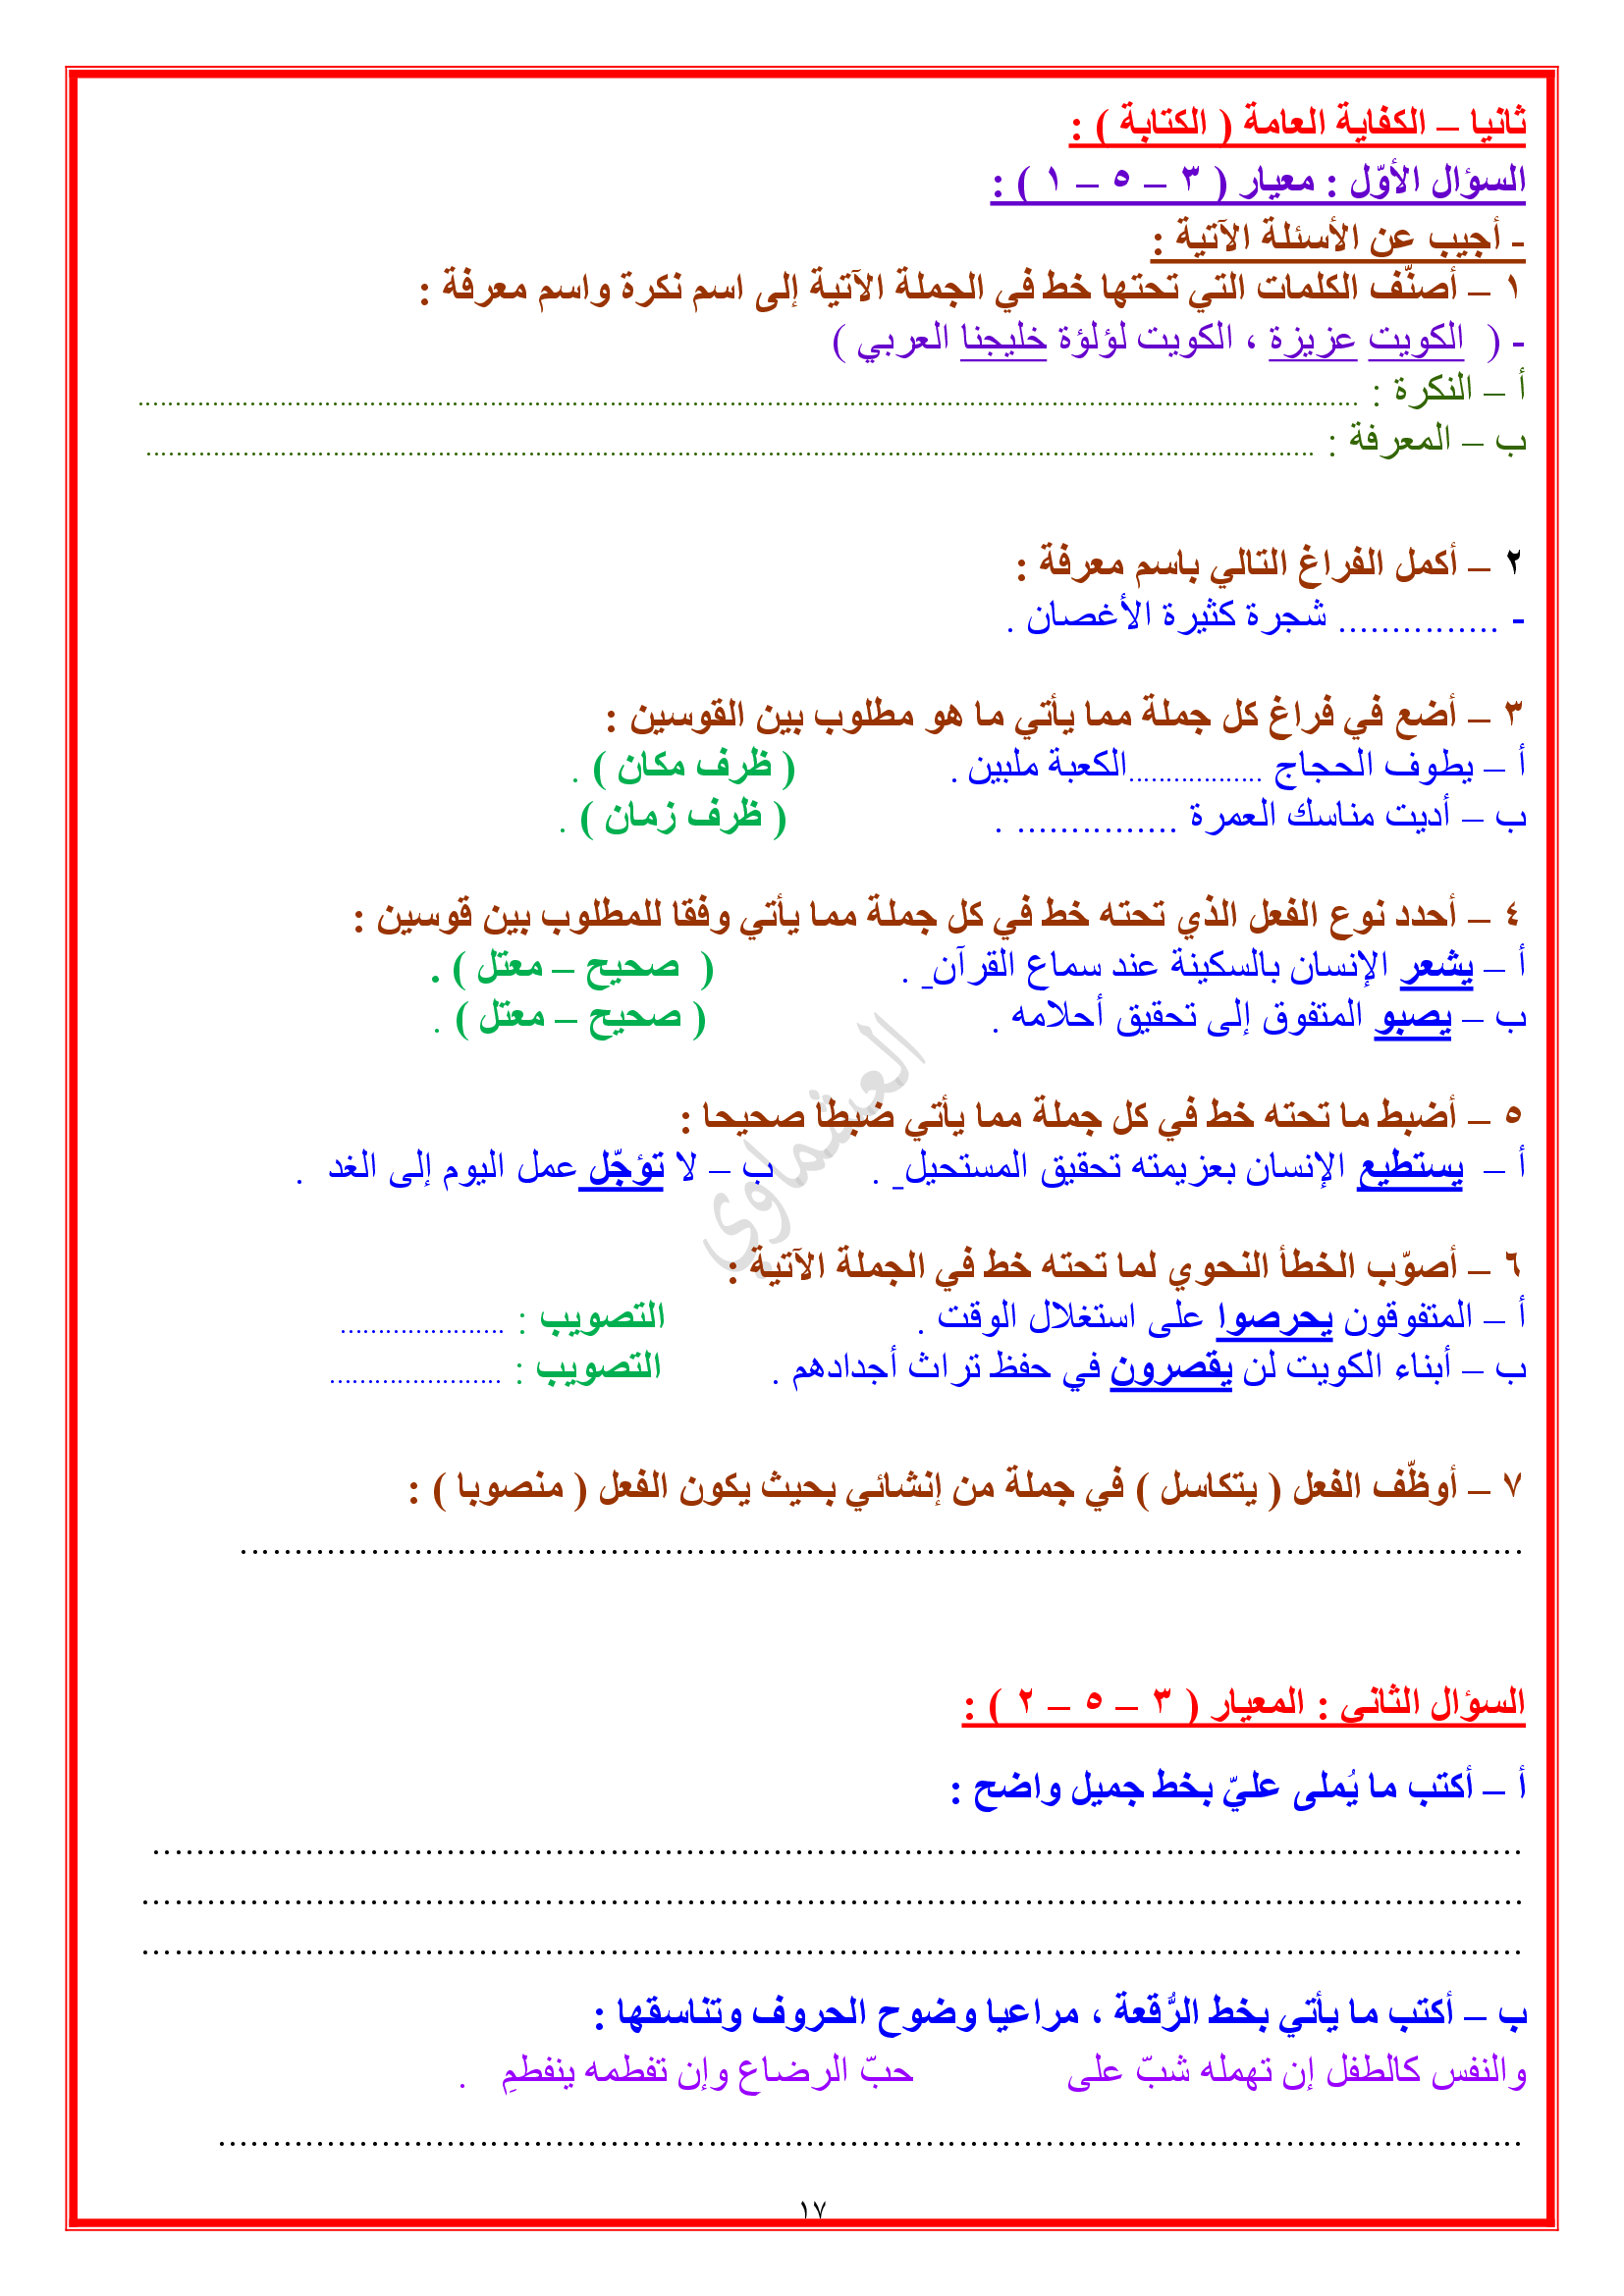 ثانيا – الكفاية العامة ( الكتابة ) :
السؤال الأوّل : معيار ( ٣ – ٥ – ١ ) :
- أجيب عن الأسئلة الآتية :
١ – أصنّف الكلمات التي تحتها خط في الجملة الآتية إلى اسم نكرة واسم معرفة :
- ( الكويت عزيزة ، الكويت لؤلؤة خليجنا العربي )
أ – النكرة : ..............................
ب – المعرفة : ..............................
٢ – أكمل الفراغ التالي باسم معرفة :
- ............... شجرة كثيرة الأغصان .
٣ – أضع في فراغ كل جملة مما يأتي ما هو مطلوب بين القوسين :
أ – يطوف الحجاج ..................الكعبة ملبين . ( ظرف مكان ) .
ب – أديت مناسك العمرة ............... . ( ظرف زمان ) .
٤ – أحدد نوع الفعل الذي تحته خط في كل جملة مما يأتي وفقا للمطلوب بين قوسين :
أ – يشعر الإنسان بالسكينة عند سماع القرآن . ( صحيح – معتل ) .
ب – يصبو المتفوق إلى تحقيق أحلامه . ( صحيح – معتل ) .
٥ – أضبط ما تحته خط في كل جملة مما يأتي ضبطا صحيحا :
أ – يستطيع الإنسان بعزيمته تحقيق المستحيل . ب – لا تؤجّل عمل اليوم إلى الغد .
٦ – أصوّب الخطأ النحوي لما تحته خط في الجملة الآتية :
أ – المتفوقون يحرصوا على استغلال الوقت . التصويب : ......................
ب – أبناء الكويت لن يقصرون في حفظ تراث أجدادهم . التصويب : .......................
٧ – أوظّف الفعل ( يتكاسل ) في جملة من إنشائي بحيث يكون الفعل ( منصوبا ) :
..............................
السؤال الثاني : المعيار ( ٣ – ٥ – ٢ ) :
أ – أكتب ما يُملى عليّ بخط جميل واضح :
..............................
..............................
..............................
ب – أكتب ما يأتي بخط الرُّقعة ، مراعيا وضوح الحروف وتناسقها :
والنفس كالطفل إن تهمله شبّ على حبّ الرضاع وإن تفطمه ينفطمِ .
..............................
١٧
العشماوي